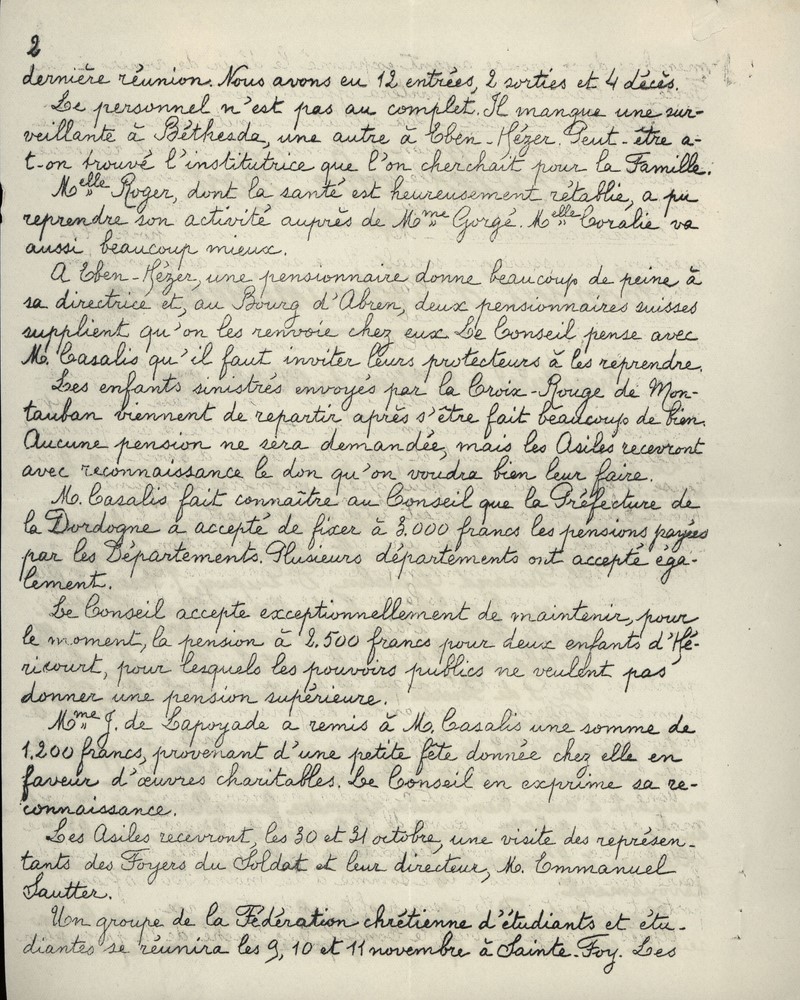 2
dernière réunion. Nous avons eu 12 entrées, 2 sorties et 4 décès.
Le personnel n'est pas au complet. Il manque une sur-
veillante à Béthesda, une autre à Eben-Hézer. Peut-être a-
t-on trouvé l'institutrice que l'on cherchait pour la Famille.
Melle Roger, dont la santé est heureusement rétablie, a pu
reprendre son activité auprès de Mme Gorgé. Melle Coralie va
aussi beaucoup mieux.
A Eben-Hézer, une pensionnaire donne beaucoup de peine à
sa directrice et, au Bourg d'Abren, deux pensionnaires suisses
supplient qu'on les renvoie chez eux. Le Conseil pense avec
M. Casalis qu'il faut inviter leurs protecteurs à les reprendre.
Les enfants sinistrés envoyés par la Croix-Rouge de Mon-
tauban viennent de repartir après s'être fait beaucoup de bien.
Aucune pension ne sera demandée, mais les Asiles recevront
avec reconnaissance le don qu'on voudra bien leur faire.
M. Casalis fait connaître au Conseil que la Préfecture de
la Dordogne a accepté de fixer à 3.000 francs les pensions payées
par les Départements. Plusieurs départements ont accepté éga-
lement.
Le Conseil accepte exceptionnellement de maintenir, pour
le moment, la pension à 2.500 francs pour deux enfants d'Hé-
ricourt, pour lesquels les pouvoirs publics ne veulent pas
donner une pension supérieure.
Mme J. de Lapoyade a remis à M. Casalis une somme de
1.200 francs, provenant d'une petite fête donnée chez elle en
faveur d'œuvres charitables. Le Conseil en exprime sa re-
connaissance.
Les Asiles recevront, les 30 et 31 octobre, une visite des représen-
tants des Foyers du Soldat et leur directeur, M. Emmanuel
Sautter.
Un groupe de la Fédération chrétienne d'étudiants et étu-
diantes se réunira les 9, 10 et 11 novembre à Sainte-Foy. Les